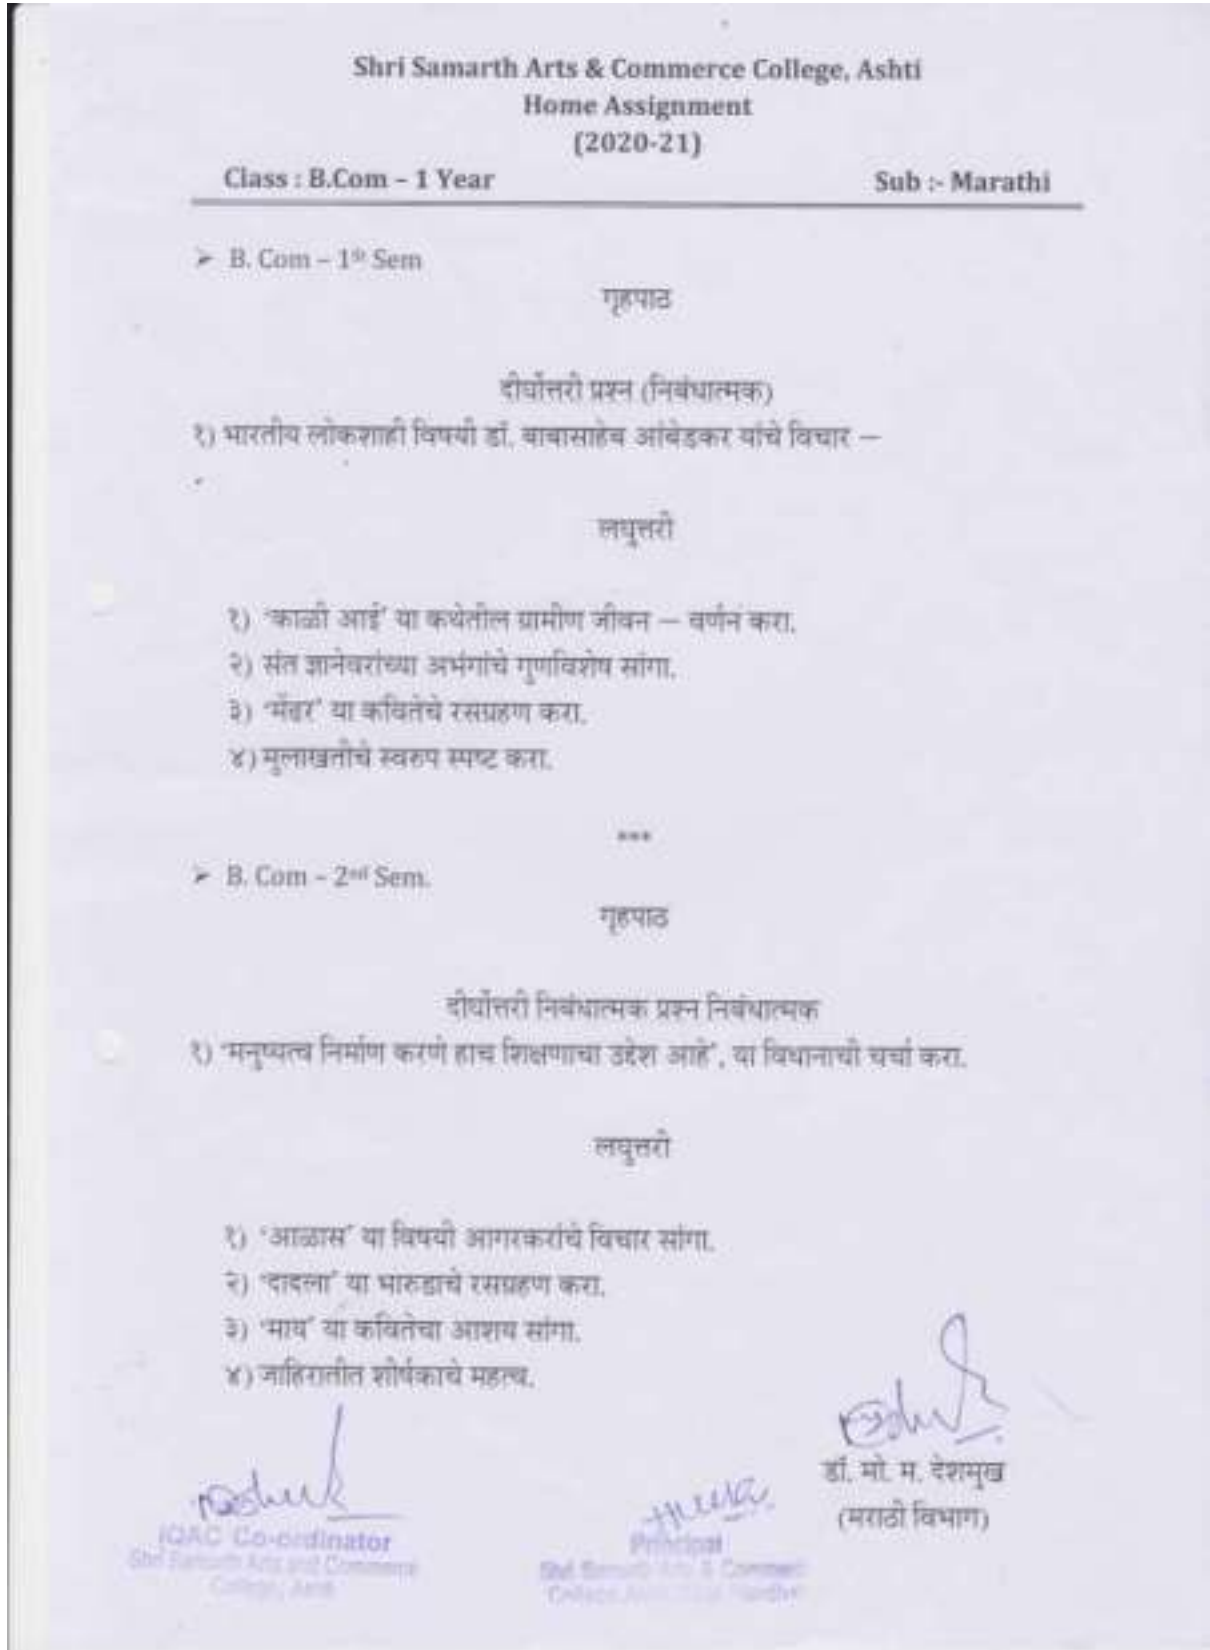 Shri Samarth Arts & Commerce College, Ashti
Home Assignment
(2020-21)
Class : B.Com – 1 Year Sub :- Marathi
➢ B. Com – 1st Sem
गृहपाठ
दीर्घोत्तरी प्रश्न (निबंधात्मक)
१) भारतीय लोकशाही विषयी डॉ. बाबासाहेब आंबेडकर यांचे विचार –
लघुत्तरी
१) ‘काळी आई’ या कथेतील ग्रामीण जीवन – वर्णन करा.
२) संत ज्ञानेवरांच्या अभंगांचे गुणविशेष सांगा.
३) ‘मेंढरं’ या कवितेचे रसग्रहण करा.
४) मुलाखतीचे स्वरुप स्पष्ट करा.
***
➢ B. Com – 2nd Sem.
गृहपाठ
दीर्घोत्तरी निबंधात्मक प्रश्न निबंधात्मक
१) ‘मनुष्यत्व निर्माण करणे हाच शिक्षणाचा उद्देश आहे’, या विधानाची चर्चा करा.
लघुत्तरी
१) ‘आळास’ या विषयी आगरकरांचे विचार सांगा.
२) ‘दादला’ या भारुडाचे रसग्रहण करा.
३) ‘माय’ या कवितेचा आशय सांगा.
४) जाहिरातीत शीर्षकाचे महत्व.
डॉ. मो. म. देशमुख
(मराठी विभाग)
IQAC Co-ordinator
Shri Samarth Arts and Commerce
College, Ashti
Principal
Shri Samarth Arts & Commerce
College